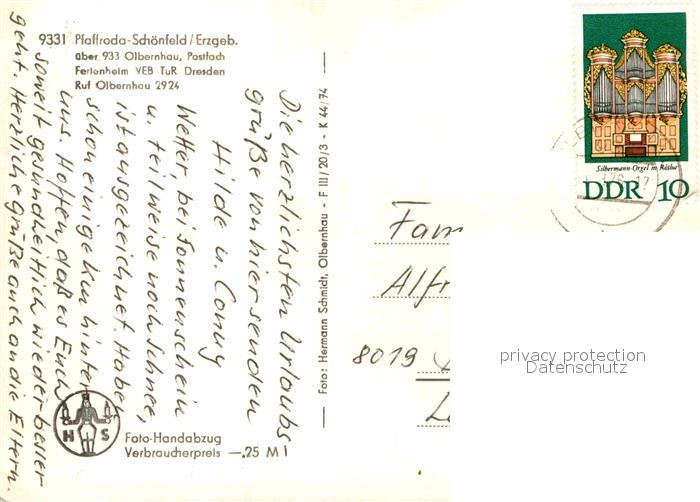 9331 Pfaffroda-Schönfeld / Erzgeb.
über 933 Olbernhau, Postfach
Ferienheim VEB TuR Dresden
Ruf Olbernhau 2924
Die herzlichsten Urlaubs
grüße von hier senden
Hilde u. Conny
Wetter bei Sonnenschein
u. teilweise noch Schnee,
ist ausgezeichnet. Haben
schon einige km hinter
uns. Hoffen, daß es Euch
soweit gesundheitlich wieder besser
geht. Herzliche Grüße auch an die Eltern.
H S
Foto-Handabzug
Verbraucherpreis —.25 M
Foto: Hermann Schmidt, Olbernhau - F III/20/3 - K 44/74
Silbermann-Orgel in Rötha
DDR 10
Fam
Alfr
8019
privacy protection
Datenschutz